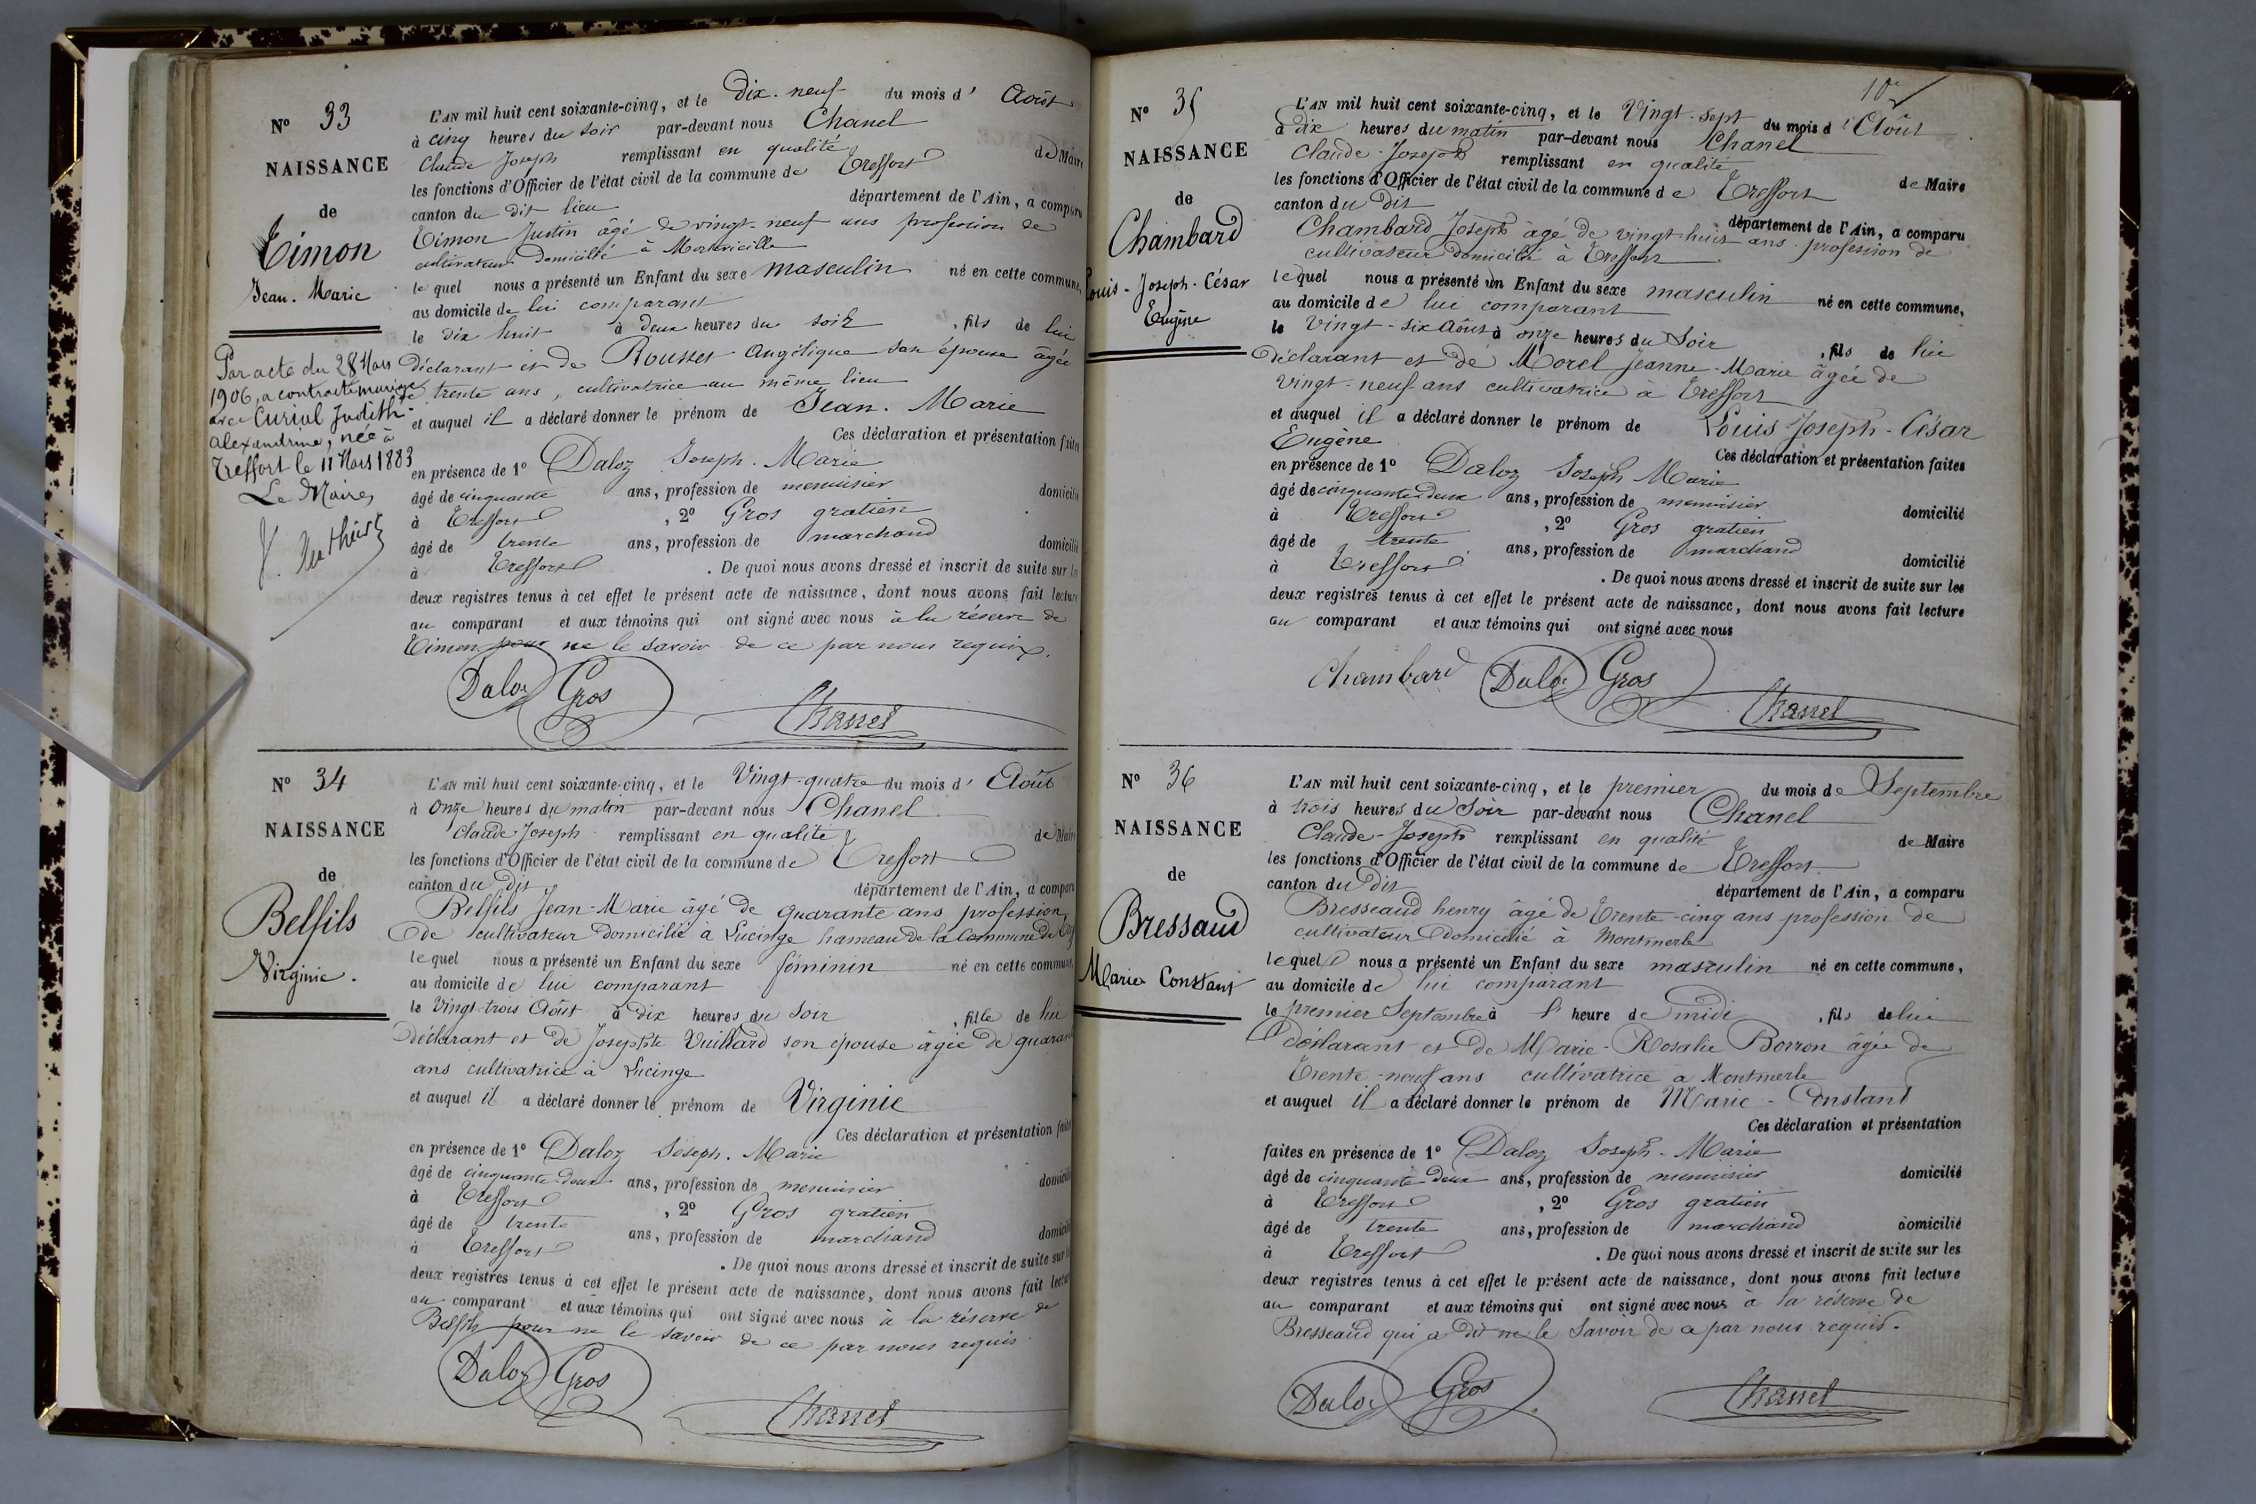 N° 33
NAISSANCE
de
Timon
Jean. Marie
Par acte du 28 Mars
1906, a contracté mariage
avec Curial Judith-
Alexandrine, née à
Treffort le 11 Mars 1883
Le Maire,
L'AN mil huit cent soixante-cinq, et le dix-neuf du mois d'Août
à cinq heures du soir par-devant nous Chanel
Claude Joseph remplissant en qualité de Maire
les fonctions d'Officier de l'état civil de la commune de Treffort
canton du dit lieu département de l'Ain, a comparu
Timon Justin âgé de vingt-neuf ans profession de
cultivateur domicilié à
lequel nous a présenté un Enfant du sexe masculin né en cette commune,
au domicile de lui comparant
le dix huit à deux heures du soir, fils de lui
déclarant et de Rousset Angélique son épouse âgée
de trente ans, cultivatrice au même lieu
et auquel il a déclaré donner le prénom de Jean. Marie
Ces déclaration et présentation faites
en présence de 1° Daloz Joseph. Marie
âgé de cinquante ans, profession de menuisier domicilié
à Treffort, 2° Gros gratien
âgé de trente ans, profession de marchand domicilié
à Treffort. De quoi nous avons dressé et inscrit de suite sur les
deux registres tenus à cet effet le présent acte de naissance, dont nous avons fait lecture
au comparant et aux témoins qui ont signé avec nous à la réserve de
Timon pour ne le savoir de ce par nous requis.
Daloz Gros
Chanel
N° 34
NAISSANCE
de
Belfils
Virginie.
L'AN mil huit cent soixante-cinq, et le Vingt-quatre du mois d'Août
à onze heures du matin par-devant nous Chanel
Claude Joseph remplissant en qualité de Maire
les fonctions d'Officier de l'état civil de la commune de Treffort
canton du dit département de l'Ain, a comparu
Belfils Jean-Marie âgé de quarante ans profession
de cultivateur domicilié à Lucinge hameau de la Commune de
lequel nous a présenté un Enfant du sexe féminin né en cette commune,
au domicile de lui comparant
le Vingt-trois Août à dix heures du soir, fille de lui
déclarant et de Josephte Vuillard son épouse âgée de quarante
ans cultivatrice à Lucinge
et auquel il a déclaré donner le prénom de Virginie
Ces déclaration et présentation faites
en présence de 1° Daloz Joseph. Marie
âgé de cinquante deux ans, profession de menuisier domicilié
à Treffort, 2° Gros gratien
âgé de trente ans, profession de marchand domicilié
à Treffort. De quoi nous avons dressé et inscrit de suite sur
deux registres tenus à cet effet le présent acte de naissance, dont nous avons fait lecture
au comparant et aux témoins qui ont signé avec nous à la réserve de
Belfils pour ne le savoir de ce par nous requis.
Daloz Gros
Chanel
N° 35
NAISSANCE
de
Chambard
Louis-Joseph-César
Eugène
L'AN mil huit cent soixante-cinq, et le Vingt-sept du mois d'Août
à dix heures du matin par-devant nous Chanel
Claude-Joseph remplissant en qualité de Maire
les fonctions d'Officier de l'état civil de la commune de Treffort
canton du dit département de l'Ain, a comparu
Chambard Joseph âgé de vingt-huit ans profession de
cultivateur domicilié à Treffort
lequel nous a présenté un Enfant du sexe masculin né en cette commune,
au domicile de lui comparant
le Vingt-six Août à onze heures du soir, fils de lui
déclarant et de Morel Jeanne-Marie âgée de
vingt-neuf ans cultivatrice à Treffort
et auquel il a déclaré donner le prénom de Louis Joseph-César
Eugène Ces déclaration et présentation faites
en présence de 1° Daloz Joseph Marie
âgé de cinquante deux ans, profession de menuisier domicilié
à Treffort, 2° Gros gratien
âgé de trente ans, profession de marchand domicilié
à Treffort. De quoi nous avons dressé et inscrit de suite sur les
deux registres tenus à cet effet le présent acte de naissance, dont nous avons fait lecture
au comparant et aux témoins qui ont signé avec nous
Chambard Daloz Gros
Chanel
N° 36
NAISSANCE
de
Bressaud
Marie Constant
L'AN mil huit cent soixante-cinq, et le premier du mois de Septembre
à trois heures du soir par-devant nous Chanel
Claude-Joseph remplissant en qualité de Maire
les fonctions d'Officier de l'état civil de la commune de Treffort
canton du dit département de l'Ain, a comparu
Bresseaud henry âgé de trente-cinq ans profession de
cultivateur domicilié à Montmerle
lequel nous a présenté un Enfant du sexe masculin né en cette commune,
au domicile de lui comparant
le premier Septembre à l'heure de midi, fils de lui
déclarant et de Marie-Rosalie Borron âgée de
trente-neuf ans cultivatrice à Montmerle
et auquel il a déclaré donner le prénom de Marie-Constant
Ces déclaration et présentation
faites en présence de 1° Daloz Joseph-Marie
âgé de cinquante deux ans, profession de menuisier domicilié
à Treffort, 2° Gros gratien
âgé de trente ans, profession de marchand domicilié
à Treffort. De quoi nous avons dressé et inscrit de suite sur les
deux registres tenus à cet effet le présent acte de naissance, dont nous avons fait lecture
au comparant et aux témoins qui ont signé avec nous à la réserve de
Bresseaud qui a dit ne le savoir de ce par nous requis.
Daloz Gros
Chanel